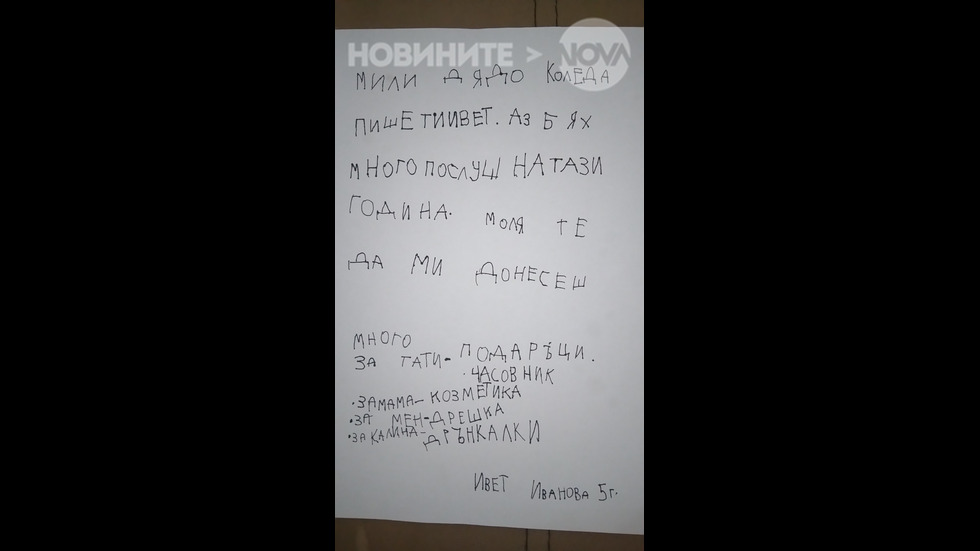 НОВИНИТЕ > NOVA
МИЛИ ДЯДО КОЛЕДА
ПИШЕ ТИ ИВЕТ. АЗ БЯХ
МНОГО ПОСЛУШ НА ТАЗИ
ГОДИНА. МОЛЯ ТЕ
ДА МИ ДОНЕСЕШ
МНОГО ПОДАРЪЦИ.
ЗА ТАТИ- ЧАСОВНИК
•ЗАМАМА- КОЗМЕТИКА
•ЗА МЕН-ДРЕШКА
•ЗА КАЛИНА-ДРЪНКАЛКИ
ИВЕТ ИВАНОВА 5 г.